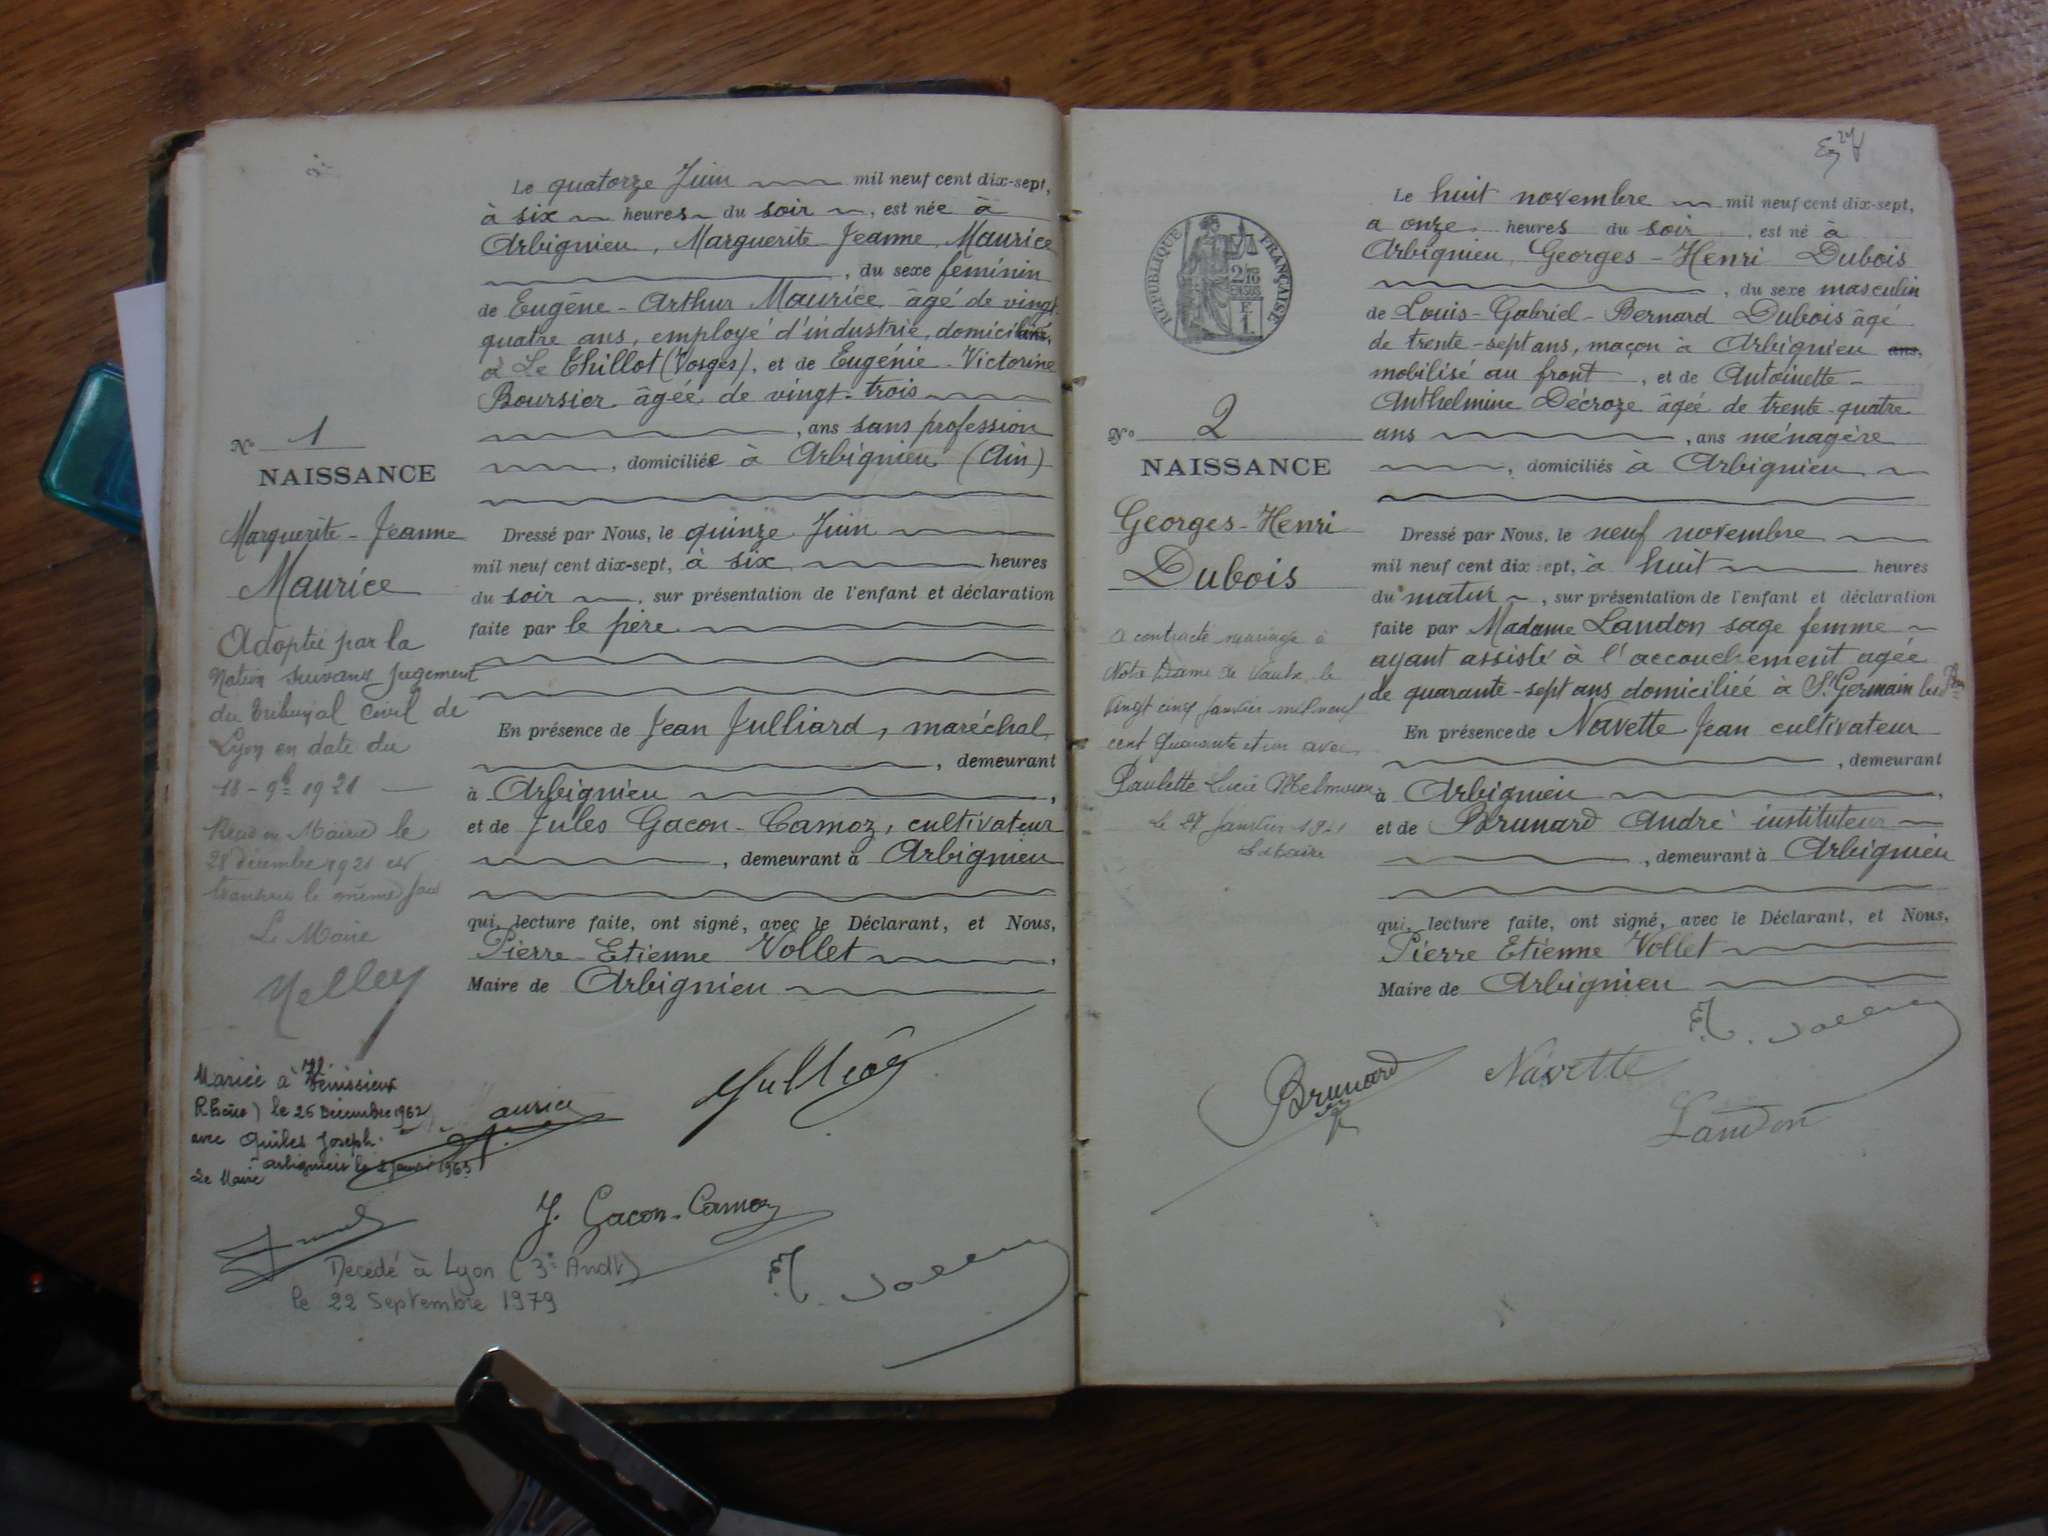 Le quatorze Juin mil neuf cent dix-sept,
à six heures du soir, est née à
Arbignieu, Marguerite Jeanne Maurice
, du sexe feminin
de Eugène-Arthur Maurice âgé de vingt
quatre ans, employé d'industrie, domicilié
à Le Thillot (Vosges), et de Eugénie-Victorine
Boursier âgée de vingt-trois
, ans sans profession
, domiciliée à Arbignieu (Ain)
N° 1
NAISSANCE
Marguerite-Jeanne
Maurice
Dressé par Nous, le quinze Juin
mil neuf cent dix-sept, à six heures
du soir, sur présentation de l'enfant et déclaration
faite par le père
En présence de Jean Julliard, maréchal
, demeurant
à Arbignieu,
et de Jules Gacon-Camoz, cultivateur
, demeurant à Arbignieu
qui, lecture faite, ont signé, avec le Déclarant, et Nous,
Pierre-Etienne Vollet,
Maire de Arbignieu
Adoptée par la
Nation suivant Jugement
du Tribunal Civil de
Lyon en date du
18-9bre 1921
Mairie le
28 décembre 1921 et
le même jour
Le Maire
Mariée à Vénissieux
Rhône) le 26 Décembre 1962
avec Quiles Joseph.
Arbignieu le 2 1963
Le Maire
Maurice
Julliard
J. Gacon-Camoz
Décédé à Lyon (3e Andt)
le 22 Septembre 1979
RÉPUBLIQUE FRANÇAISE
Le huit novembre mil neuf cent dix-sept,
a onze heures du soir, est né à
Arbignieu Georges-Henri Dubois
, du sexe masculin
de Louis-Gabriel-Bernard Dubois âgé
de trente-sept ans, maçon à Arbignieu ans,
mobilisé au front, et de Antoinette-
Anthelmine Décroze âgée de trente-quatre
ans, ans ménagère
, domiciliés à Arbignieu
N° 2
NAISSANCE
Georges-Henri
Dubois
Dressé par Nous, le neuf novembre
mil neuf cent dix-sept, à huit heures
du matin, sur présentation de l'enfant et déclaration
faite par Madame Landon sage femme
ayant assisté à l'accouchement agée
de quarante-sept ans domiciliée à St Germain les
En présence de Navette Jean cultivateur
, demeurant
à Arbignieu,
et de Brunard André instituteur
, demeurant à Arbignieu
qui, lecture faite, ont signé, avec le Déclarant, et Nous,
Pierre Etienne Vollet
Maire de Arbignieu
a contracté mariage à
Notre Dame de Vaulx le
vingt cinq Janvier mil neuf
cent quarante et un avec
Paulette Lucie
Le 27 Janvier
Brunard
Navette
Landon